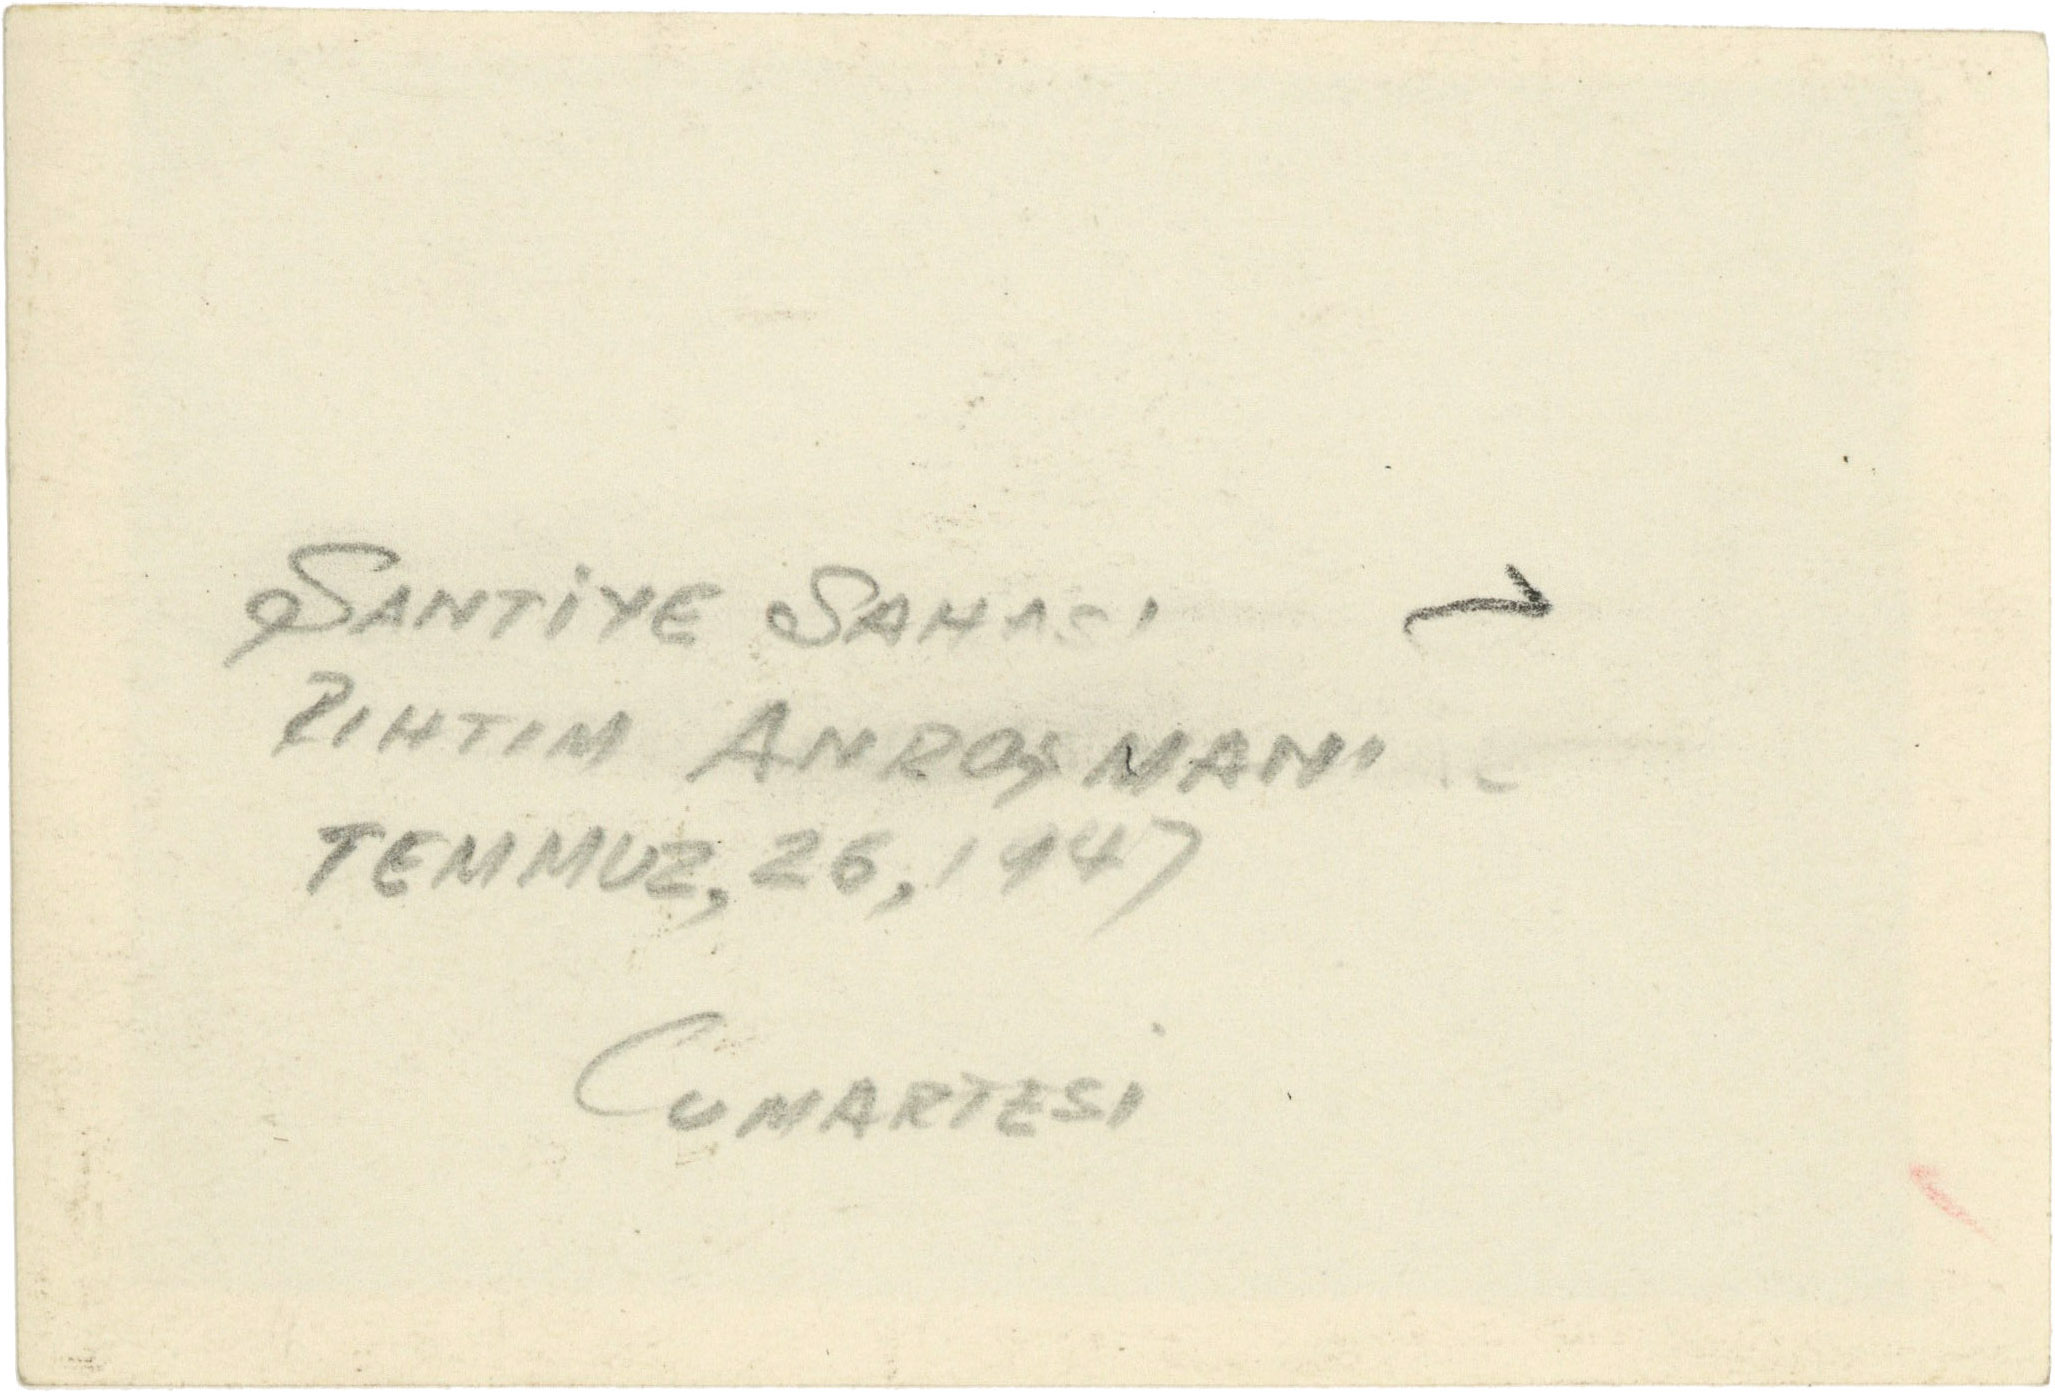 Şantiye Sahası
Rıhtım Anroşmanı
Temmuz, 26, 1947
Cumartesi